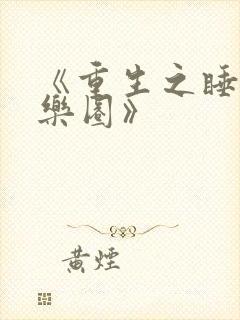 《重生之睡
樂園》
黃煙